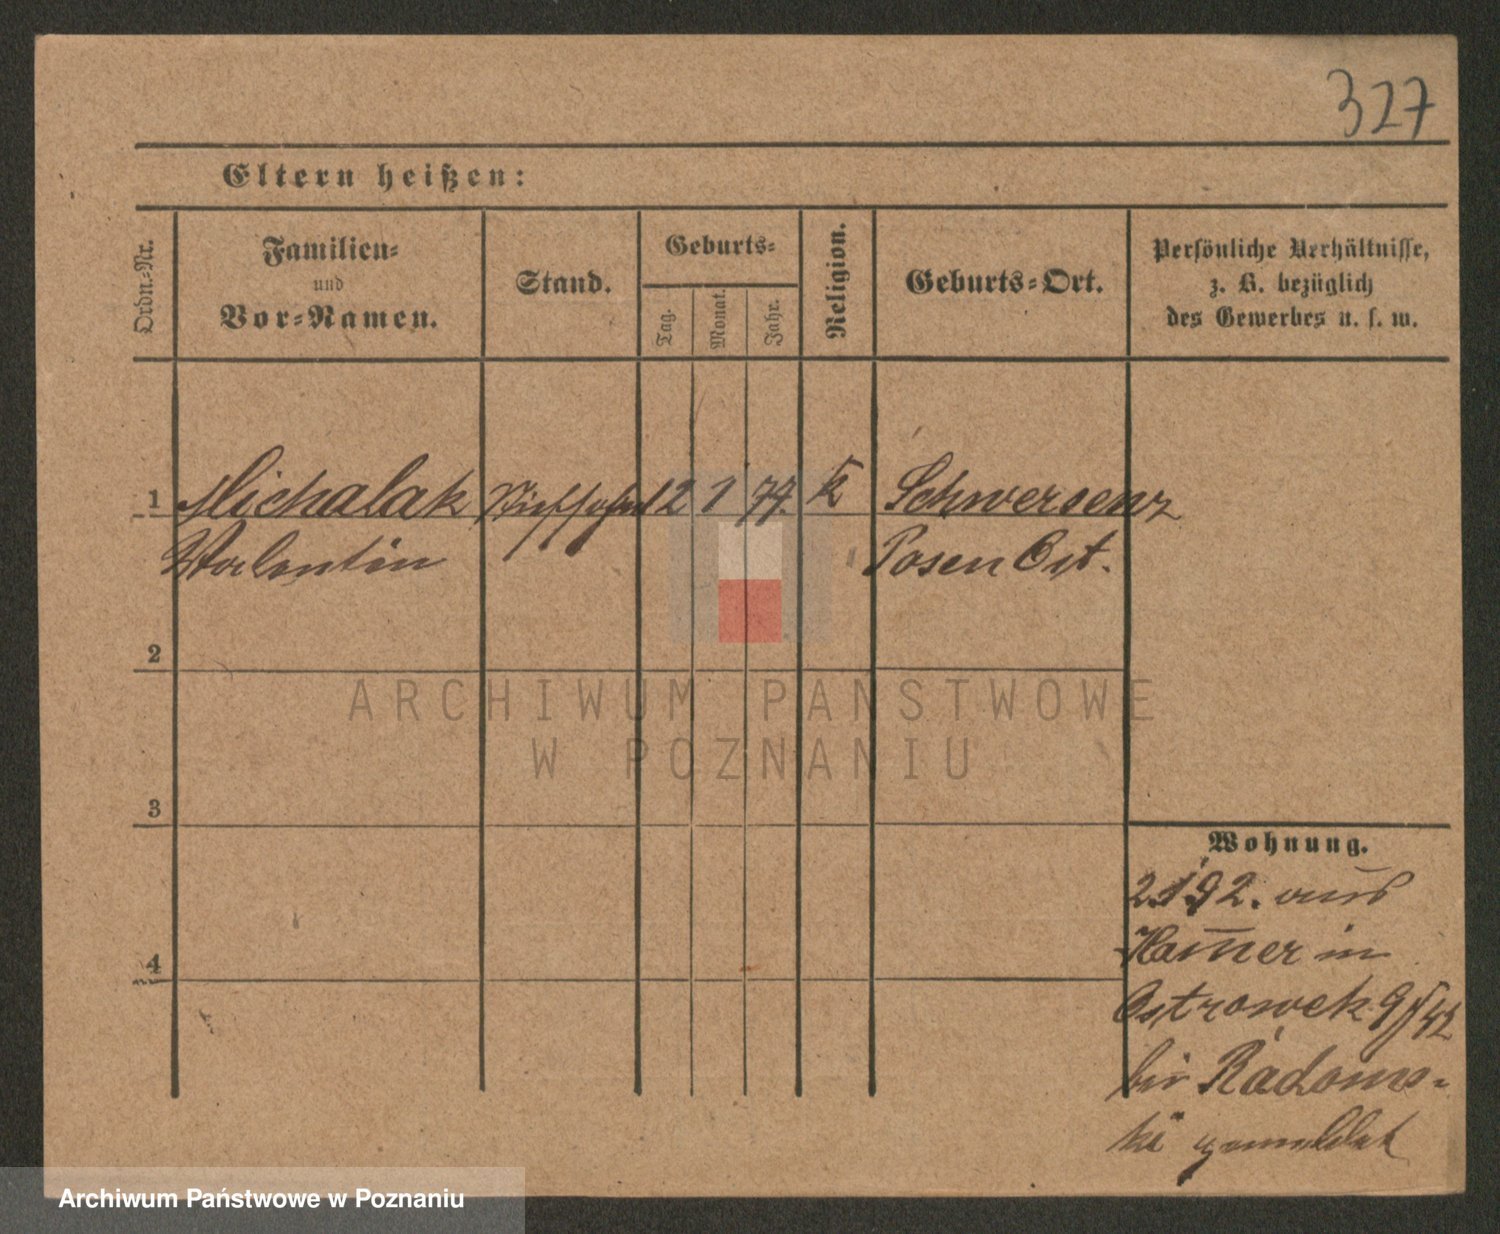 327
Eltern heißen:
Ordn.-Nr.
Familien-
und
Vor-Namen.
Stand.
Geburts-
Tag.
Monat.
Jahr.
Religion.
Geburts-Ort.
Persönliche Verhältnisse,
z. B. bezüglich
des Gewerbes u. s. w.
1 Michalak 12 1 77. k Schwersenz
Valentin Posen Ost.
2
3
4
Wohnung.
2192. aus
Ham̅er in
Ostrowek 9/
bei Radoms-
ki gemeldet
ARCHIWUM PAŃSTWOWE
W POZNANIU
Archiwum Państwowe w Poznaniu